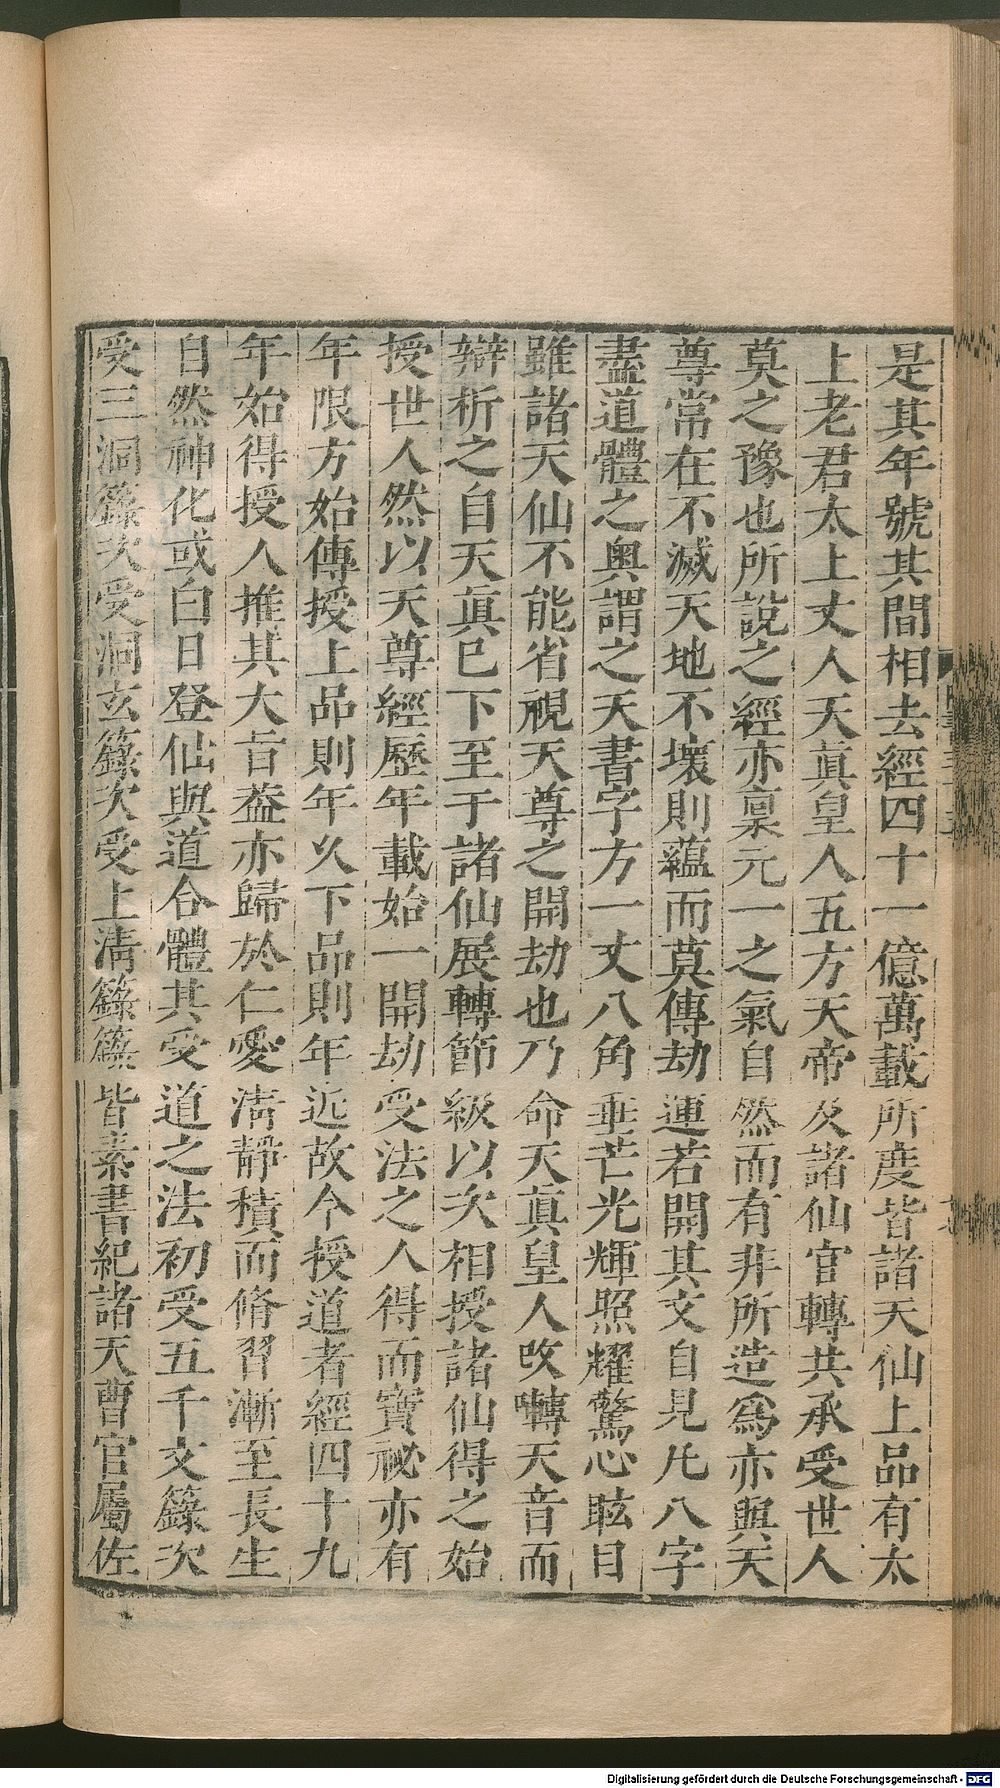 是其年號其間相去經四十一億萬載所度皆諸天仙上品有太
上老君太上丈人天眞皇人五方天帝及諸仙官轉共承受世人
莫之豫也所說之經亦稟元一之氣自然而有非所造爲亦與天
尊常在不滅天地不壞則蘊而莫傳劫運若開其文自見凡八字
盡道體之奧謂之天書字方一丈八角垂芒光輝照耀驚心眩目
雖諸天仙不能省視天尊之開劫也乃命天眞皇人改囀天音而
辯析之自天眞已下至于諸仙展轉節級以次相授諸仙得之始
授世人然以天尊經歷年載始一開劫受法之人得而寶祕亦有
年限方始傳授上品則年久下品則年近故今授道者經四十九
年始得授人推其大旨葢亦歸於仁愛淸靜積而脩習漸至長生
自然神化或白日登仙與道合體其受道之法初受五千文籙次
受三洞籙次受洞玄籙次受上淸籙籙皆素書紀諸天曹官屬佐
Digitalisierung gefördert durch die Deutsche Forschungsgemeinschaft - DFG